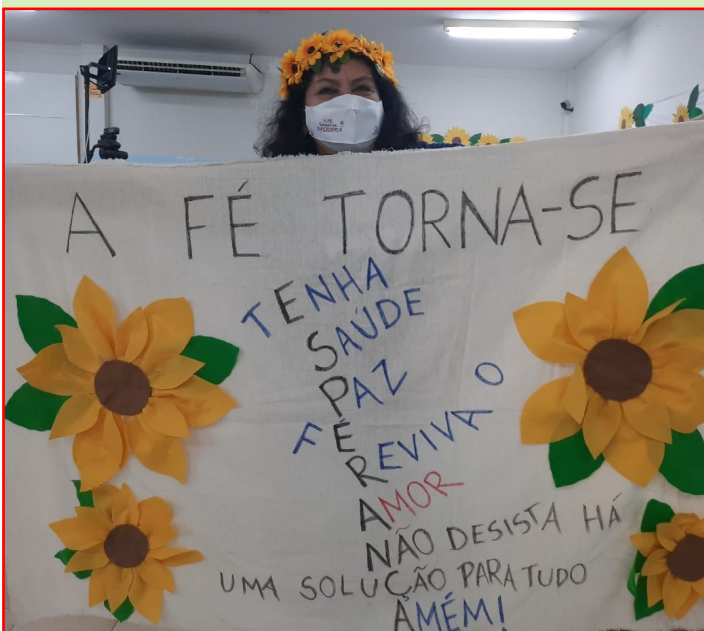 A FÉ TORNA-SE
TENHA
SAÚDE
PAZ
FÉ
REVIVA O
AMOR
NÃO DESISTA HÁ
UMA SOLUÇÃO PARA TUDO
AMÉM!